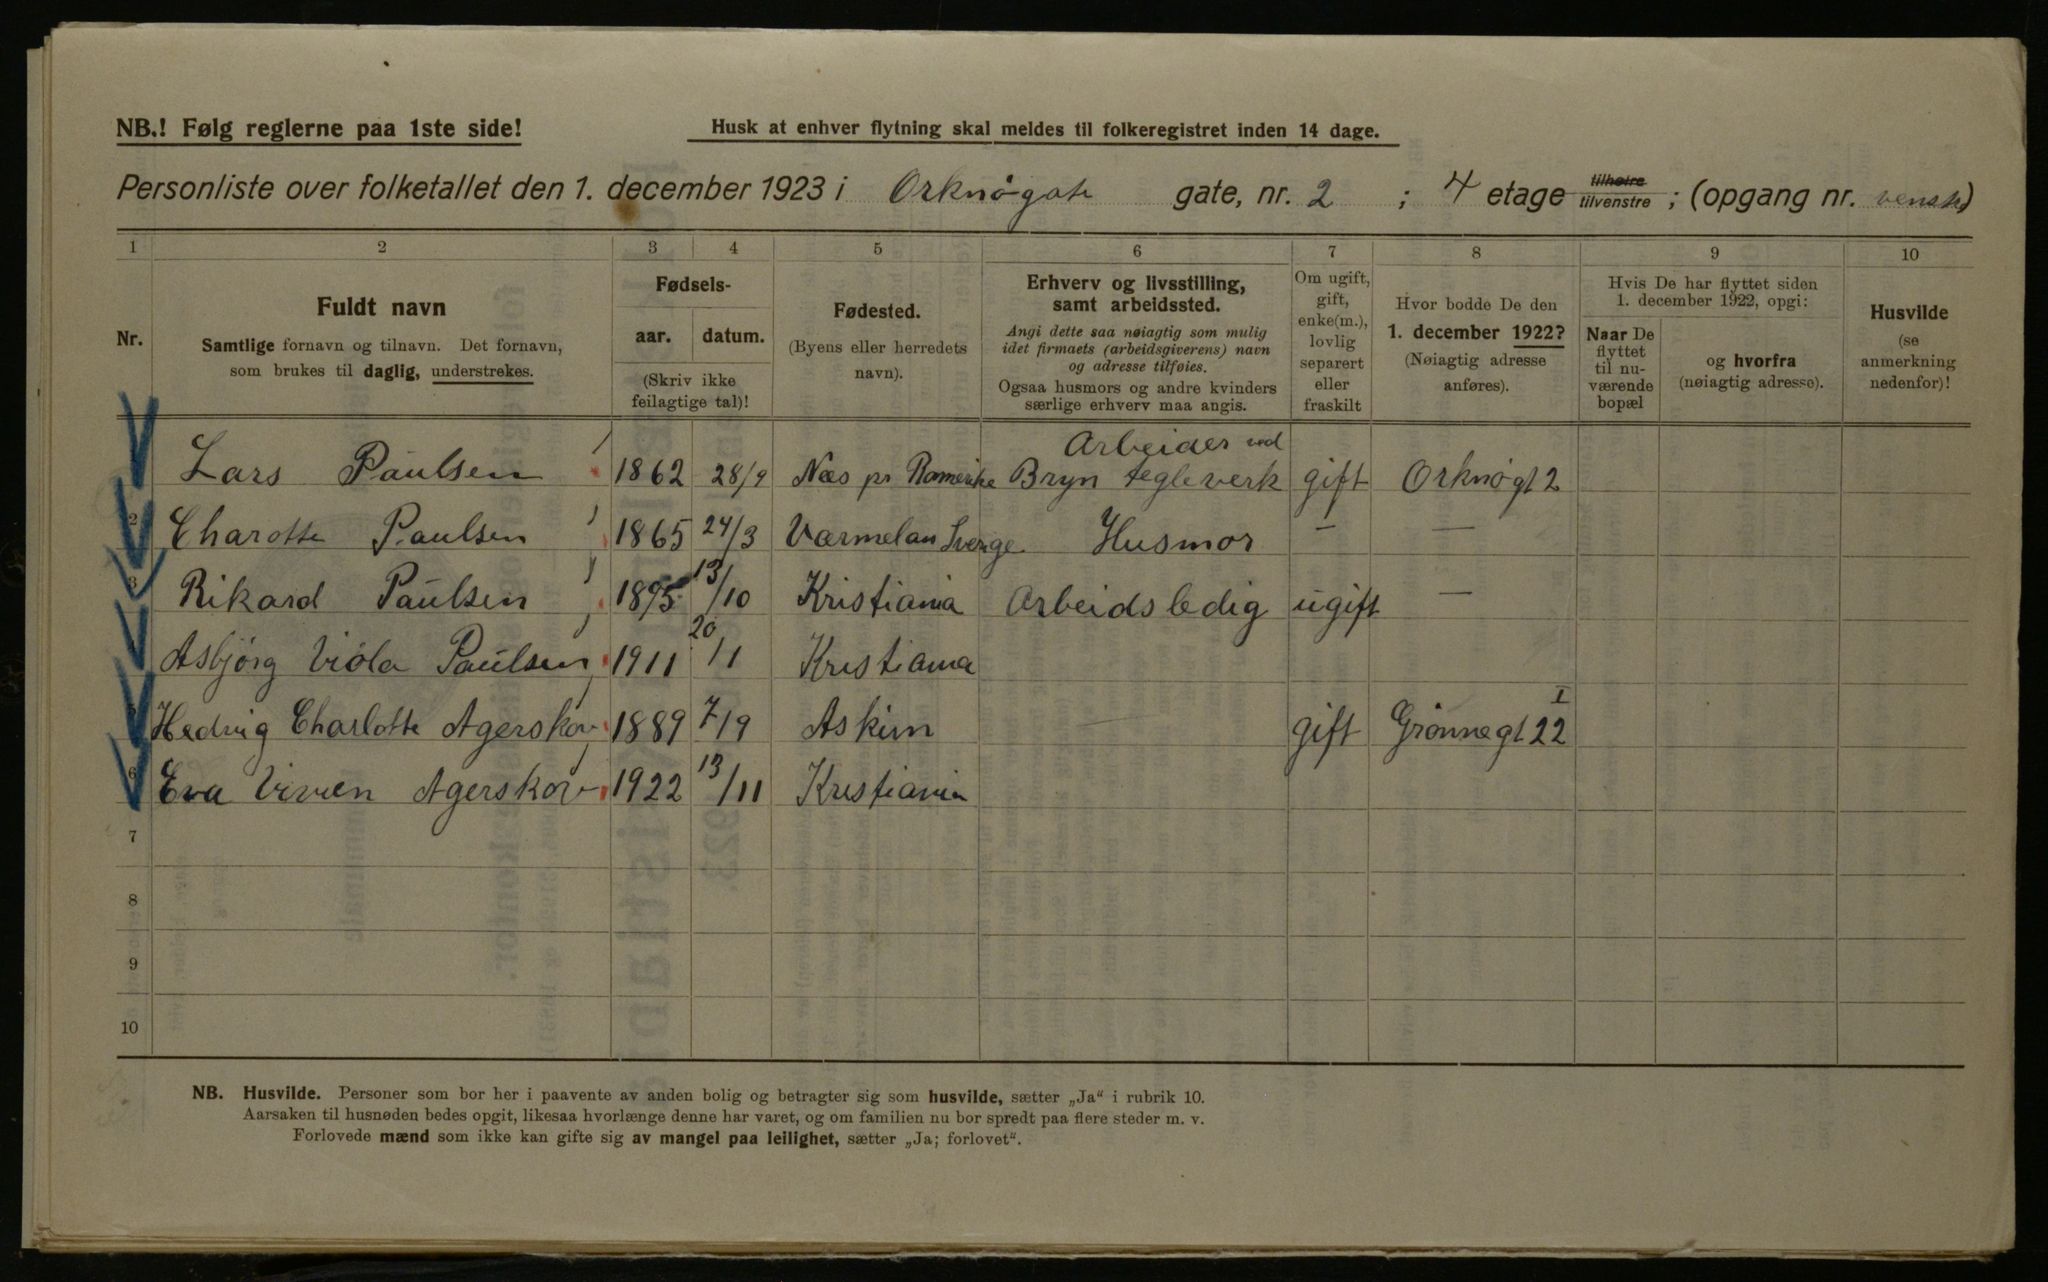 NB.! Følg reglerne paa 1ste side!
Husk at enhver flytning skal meldes til folkeregistret inden 14 dage.
Personliste over folketallet den 1. december 1923 i Orknøgate gate, nr. 2 ; 4 etage tilhøire tilvenstre ; (opgang nr. venstre)
1 2 3 4 5 6 7 8 9 10
Nr.
Fuldt navn
Samtlige fornavn og tilnavn. Det fornavn,
som brukes til daglig, understrekes.
Fødsels-
aar. datum.
(Skriv ikke
feilagtige tal)!
Fødested.
(Byens eller herredets
navn).
Erhverv og livsstilling,
samt arbeidssted.
Angi dette saa nøiagtig som mulig
idet firmaets (arbeidsgiverens) navn
og adresse tilføies.
Ogsaa husmors og andre kvinders
særlige erhverv maa angis.
Om ugift,
gift,
enke(m.),
lovlig
separert
eller
fraskilt
Hvor bodde De den
1. december 1922?
(Nøiagtig adresse
anføres).
Hvis De har flyttet siden
1. december 1922, opgi:
Naar De
flyttet
til nu-
værende
bopæl
og hvorfra
(nøiagtig adresse).
Husvilde
(se
anmerkning
nedenfor)!
Arbeider ved
Lars Paulsen 1862 28/9 Næs pr Romerike Bryn tegleverk gift Orknøgt 2
2 Charotte Paulsen 1865 24/3 Værmelan Sverge Husmor — —
3 Rikard Paulsen 1895 13/10 Kristiania Arbeidsledig ugift —
Asbjørg Viola Paulsen 1911 20/1 Kristiania
5 Hedvig Charlotte Agerskov 1889 7/9 Askim — gift Grønnegt 22 I
6 Eva Vivien Agerskov 1922 13/11 Kristiania
7
8
9
10
NB. Husvilde. Personer som bor her i paavente av anden bolig og betragter sig som husvilde, sætter „Ja“ i rubrik 10.
Aarsaken til husnøden bedes opgit, likesaa hvorlænge denne har varet, og om familien nu bor spredt paa flere steder m. v.
Forlovede mænd som ikke kan gifte sig av mangel paa leilighet, sætter „Ja; forlovet“.